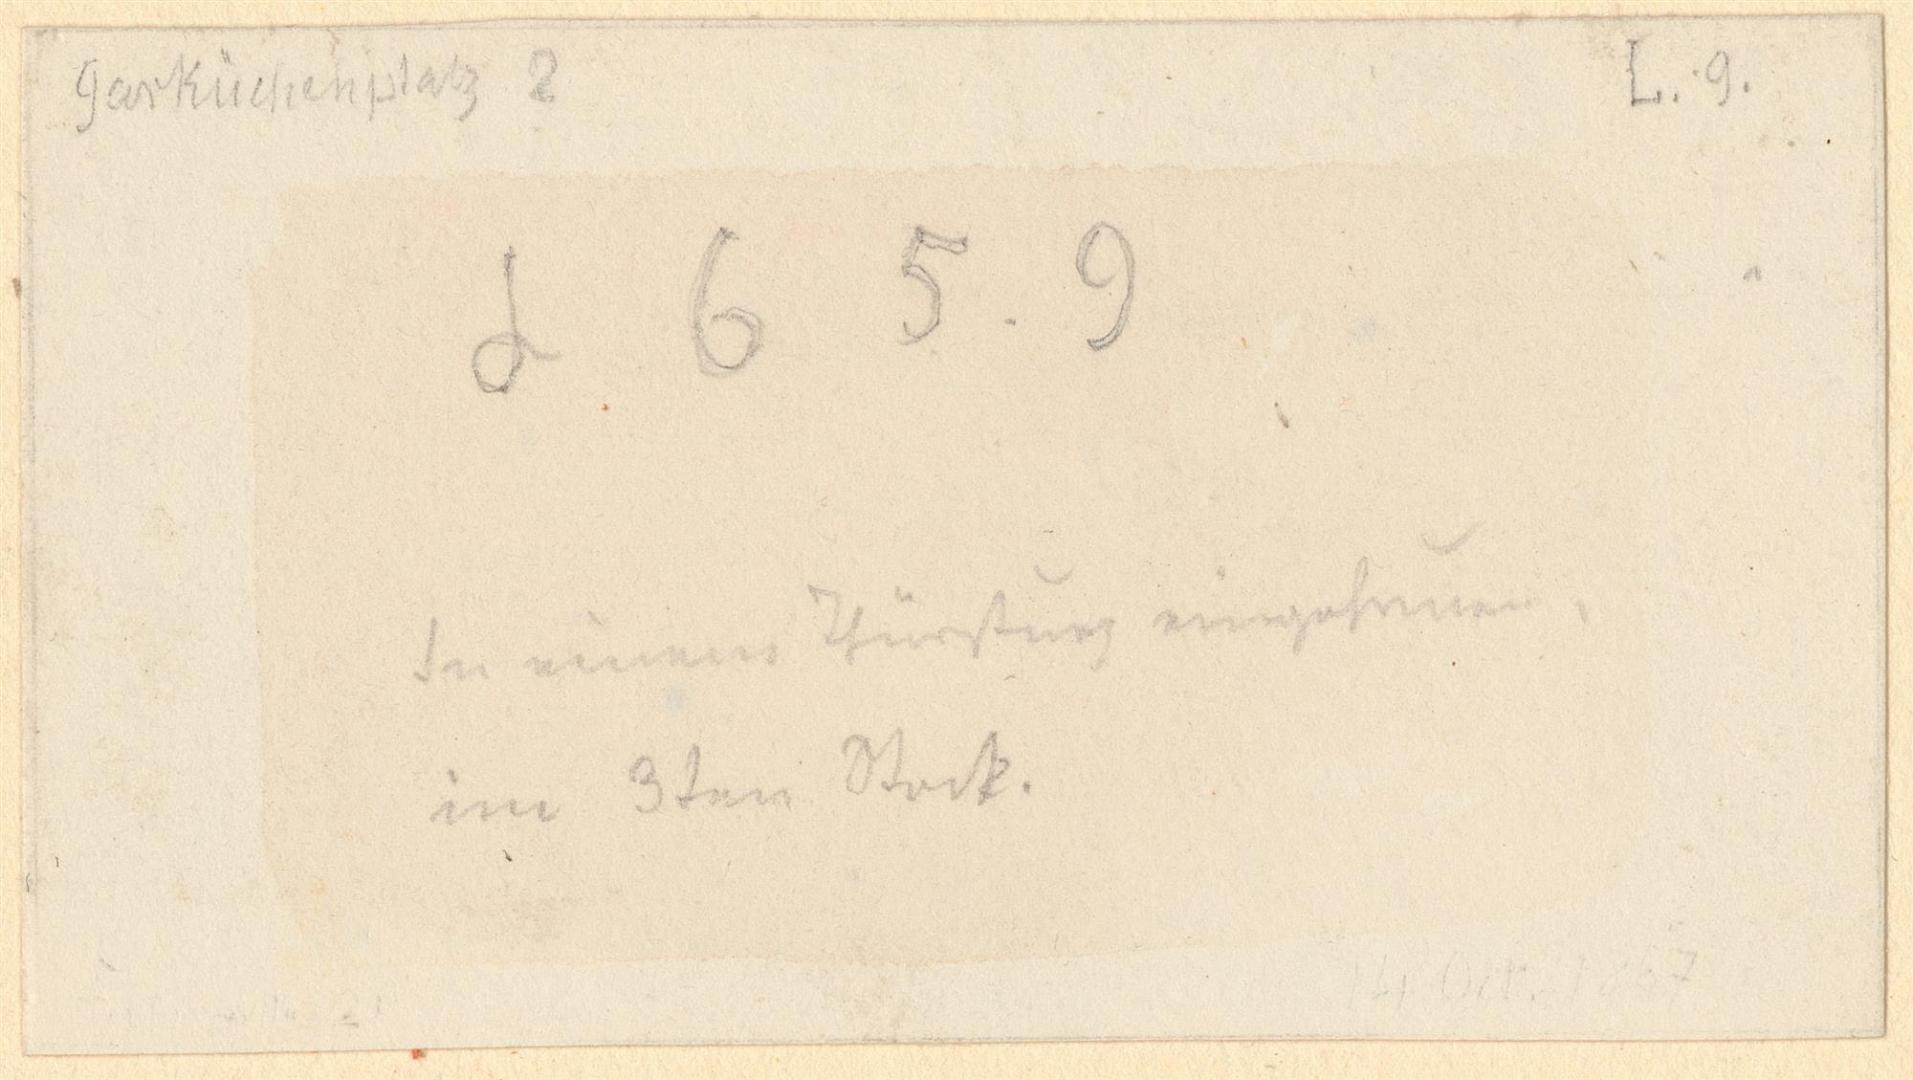 Garküchenplatz 2
L. 9.
d 6 5. 9
In einem Thürsturz eingehauen,
im 3ten Stock.
14. Oct. 1867